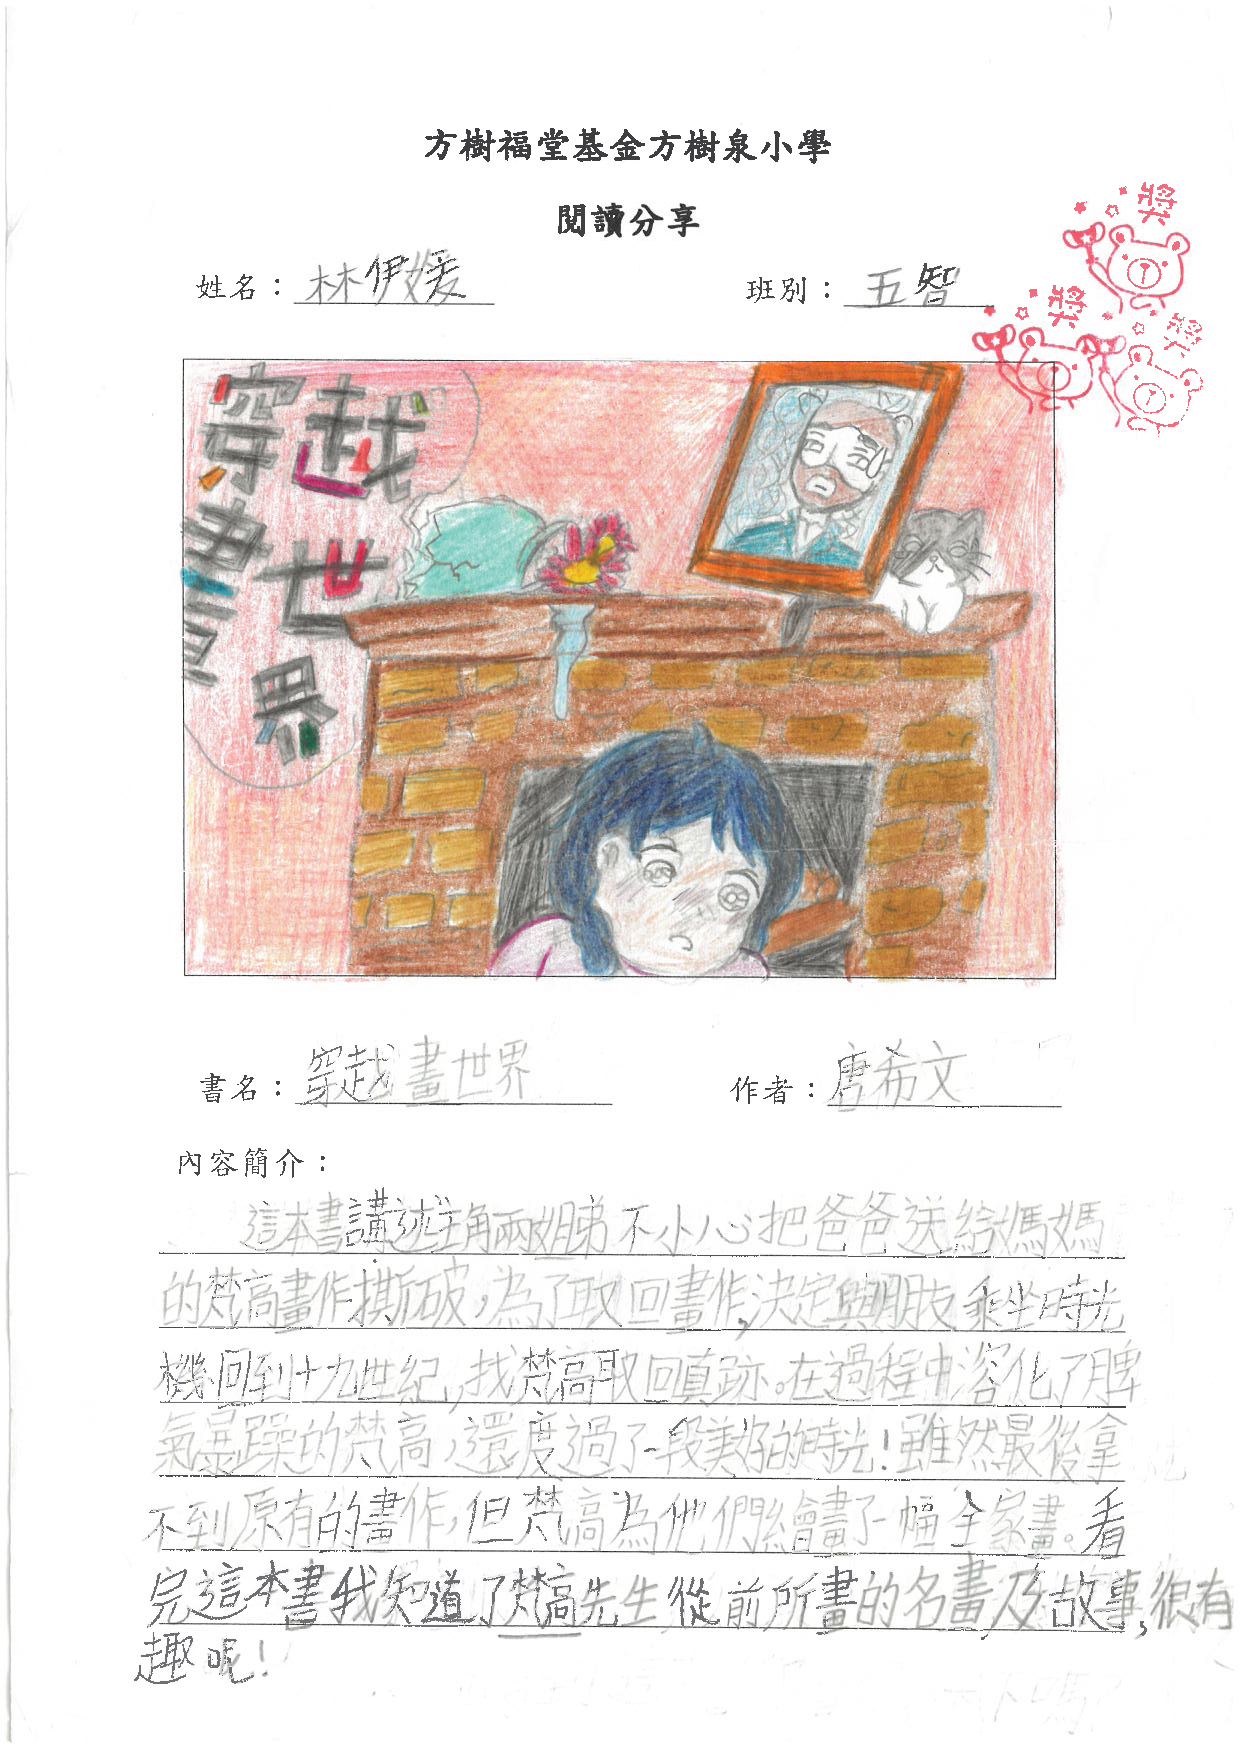 方樹福堂基金方樹泉小學
閱讀分享
姓名：林伊媛
班別：五智
獎
獎
獎
穿越
畫世
界
書名：穿越畫世界
作者：唐希文
內容簡介：
這本書講述主角兩姐弟不小心把爸爸送給媽媽
的梵高畫作撕破，為了取回畫作，決定與朋友乘坐時光
機回到十九世紀，找梵高取回真跡。在過程中溶化了脾
氣暴躁的梵高，還度過了一段美好的時光！雖然最後拿
不到原有的畫作，但梵高為他們繪畫了一幅全家畫。看
完這本書我知道了梵高先生從前所畫的名畫及故事，很有
趣呢！